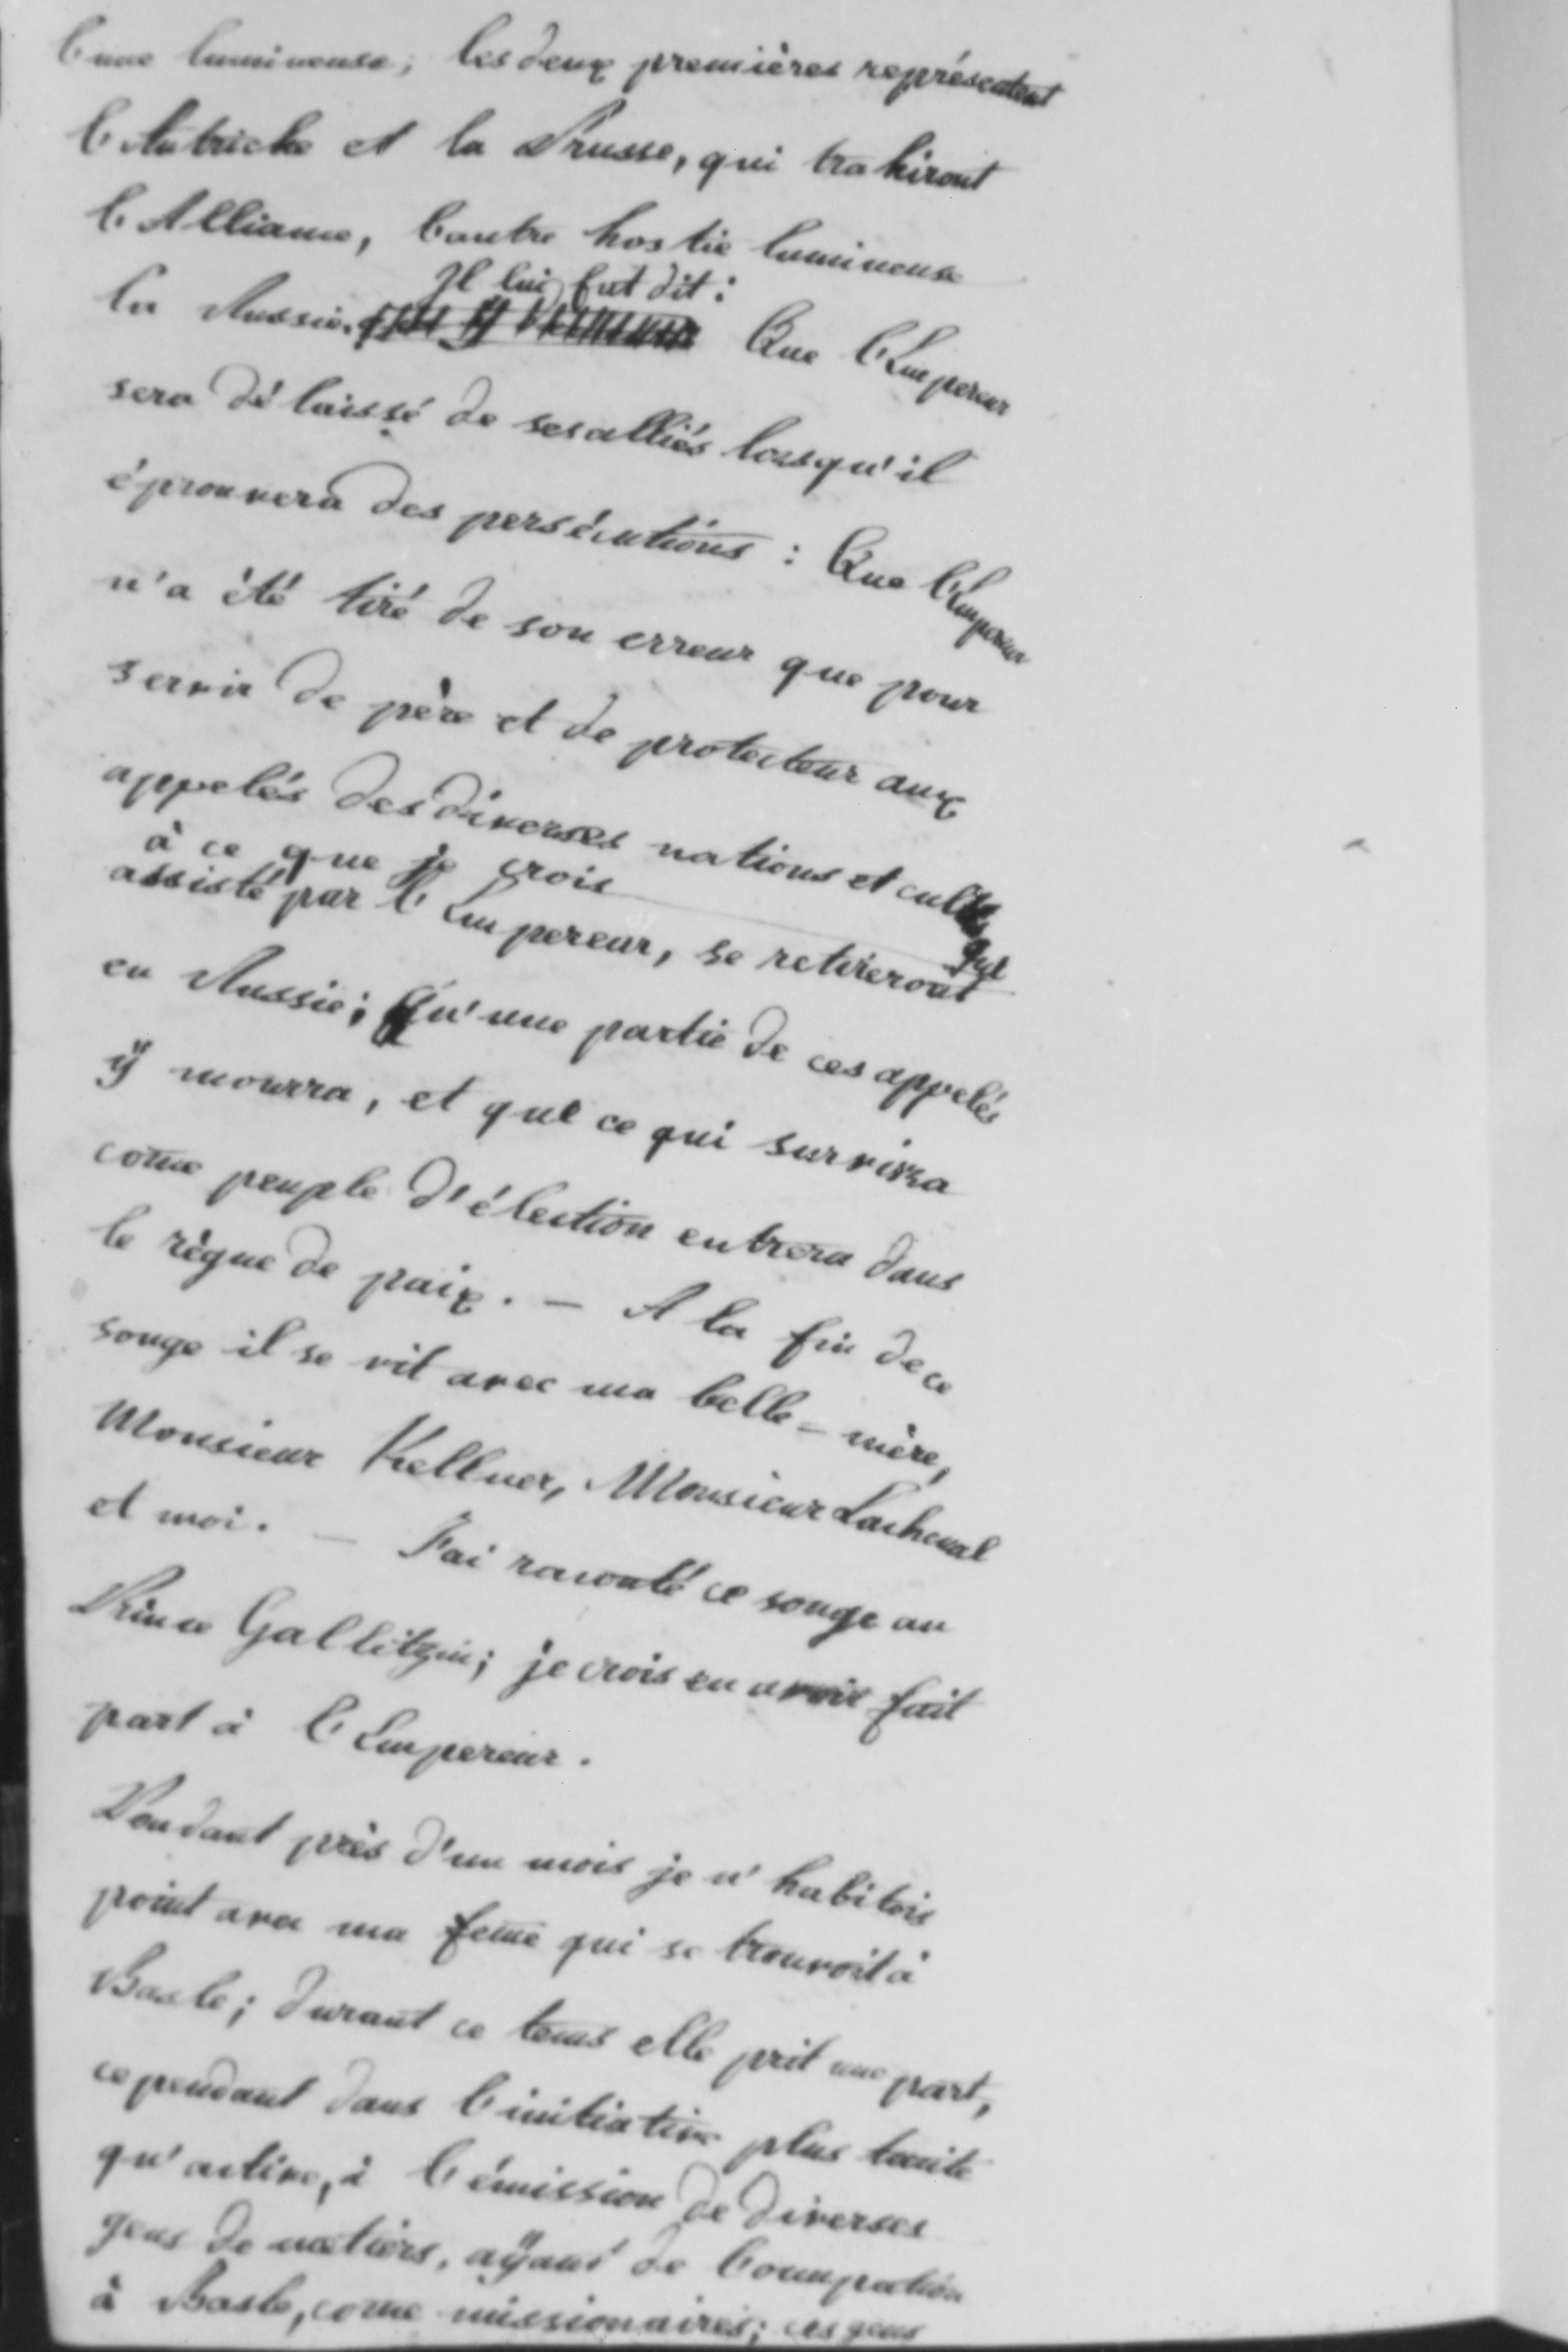 l'une lumineuse; les deux premières représentent
l'Autriche et la Prusse, qui trahiront
l'Alliance, l'autre hostie lumineuse
Il lui fut dit:
la Russie. Que l'Empereur
sera délaissé de ses alliés lorsqu'il
éprouvera des persécutions: Que l'Empereur
n'a été tiré de son erreur que pour
servir de père et de protecteur aux
appelés des diverses nations et cultes qui
à ce que je crois
assisté par l'Empereur, se retireront
en Russie; Qu'une partie de ces appelés
ÿ mourra, et que ce qui survivra
come peuple d'élection entrera dans
le règne de paix. — A la fin de ce
songe il se vit avec ma belle-mère,
Monsieur Kellner, Monsieur Lachenal
et moi. — J'ai raconté ce songe au
Prince Gallitzin; je crois en avoir fait
part à l'Empereur.
Pendant près d'un mois je n'habitois
point avec ma feme qui se trouvoit à
Basle; durant ce tems elle prit une part,
cependant dans l'initiative plus tacite
qu'active, à l'émission de diverses
gens de metiers, aÿant de l'occupation
à Basle, come missionaires; ces gens